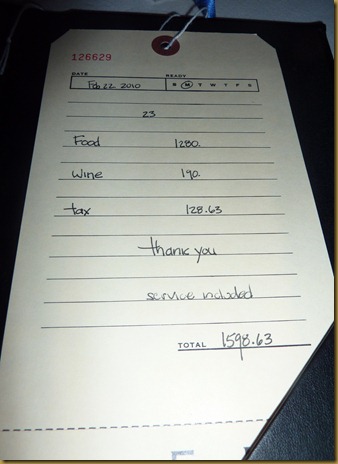 126629
DATE READY
Feb 22 2010 S M T W T F S
23
Food 1280.
Wine 190.
tax 128.63
thank you
service included
TOTAL 1598.63